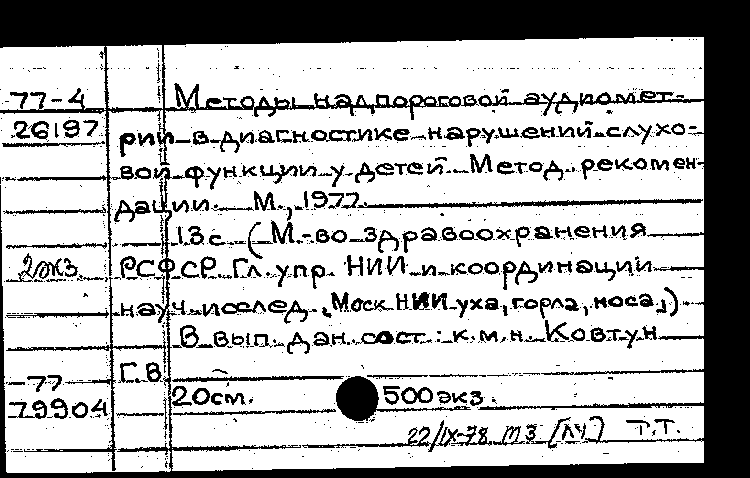 77-4 Методы надпороговой аудиомет-
26197 рии в диагностике нарушений слухо-
вой функции у детей. Метод. рекомен-
дации. М., 1977.
13с (М.-во здравоохранения
2экз. РСФСР. Гл. упр. НИИ и координации
науч. исслед., Моск НИИ уха, горла, носа,).
В вып. дан. сост.: к.м.н. Ковтун
-77 Г.В.
79904 20см. 500экз.
22/IX-78 МЗ [ЛУ] Т.Т.